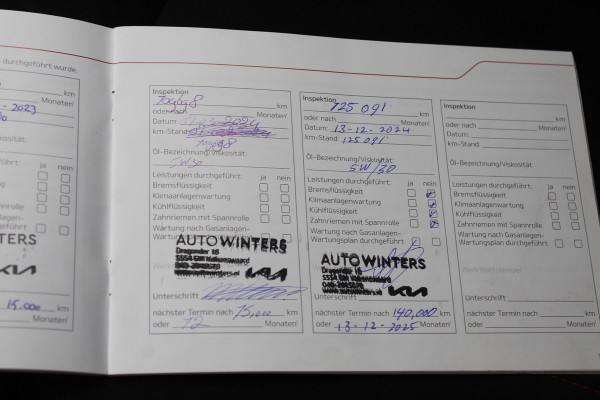 durchgeführt wurde.
Monaten
-2023
ja nein
15.000 km
Monaten
Inspektion
km
oder nach Monaten
Datum:
km-Stand:
Öl-Bezeichnung/Viskosität:
5W30
Leistungen durchgeführt: ja nein
Bremsflüssigkeit
Klimaanlagenwartung
Kühlflüssigkeit
Zahnriemen mit Spannrolle
Wartung nach Gasanlagen-
AUTO WINTERS
KIA
Unterschrift
nächster Termin nach 15,000 km
oder 12 Monaten
Inspektion
125 091 km
oder nach Monaten
Datum: 13-12-2024
km-Stand: 125 091
Öl-Bezeichnung/Viskosität:
5W/30
Leistungen durchgeführt: ja nein
Bremsflüssigkeit
Klimaanlagenwartung
Kühlflüssigkeit
Zahnriemen mit Spannrolle
Wartung nach Gasanlagen-
Wartungsplan durchgeführt
AUTO WINTERS
KIA
Unterschrift
nächster Termin nach 140,000 km
oder 13-12-2025 Monaten
Inspektion
km
oder nach Monaten
Datum:
km-Stand:
Öl-Bezeichnung/Viskosität:
Leistungen durchgeführt: ja nein
Bremsflüssigkeit
Klimaanlagenwartung
Kühlflüssigkeit
Zahnriemen mit Spannrolle
Wartung nach Gasanlagen-
Wartungsplan durchgeführt
Unterschrift
nächster Termin nach km
oder Monaten